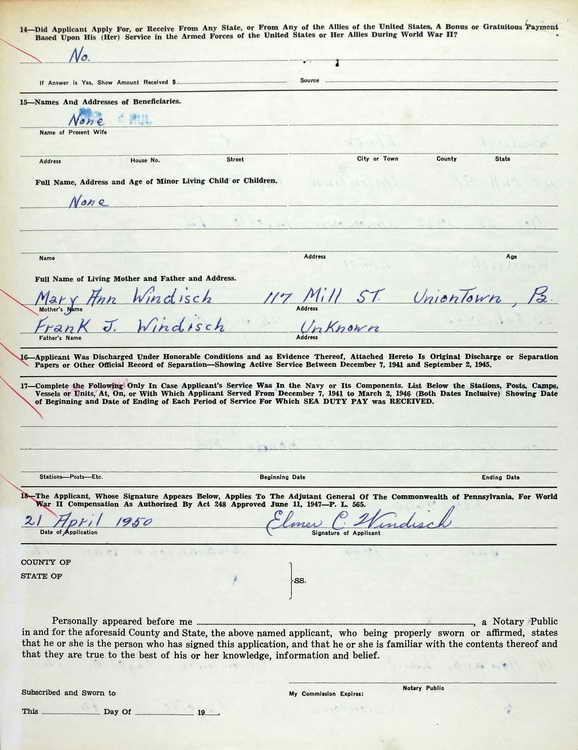 14—Did Applicant Apply For, or Receive From Any State, or From Any of the Allies of the United States, A Bonus or Gratuitous Payment
Based Upon His (Her) Service in the Armed Forces of the United States or Her Allies During World War II?
No.
If Answer is Yes, Show Amount Received $ Source
15—Names And Addresses of Beneficiaries.
None
Name of Present Wife
Address House No. Street City or Town County State
Full Name, Address and Age of Minor Living Child or Children.
None
Name Address Age
Full Name of Living Mother and Father and Address.
Mary Ann Windisch 117 Mill ST. Uniontown, Pa.
Mother's Name Address
Frank J. Windisch Unknown
Father's Name Address
16—Applicant Was Discharged Under Honorable Conditions and as Evidence Thereof, Attached Hereto Is Original Discharge or Separation
Papers or Other Official Record of Separation—Showing Active Service Between December 7, 1941 and September 2, 1945.
17—Complete the Following Only In Case Applicant's Service Was In the Navy or Its Components. List Below the Stations, Posts, Camps,
Vessels or Units, At, On, or With Which Applicant Served From December 7, 1941 to March 2, 1946 (Both Dates Inclusive) Showing Date
of Beginning and Date of Ending of Each Period of Service For Which SEA DUTY PAY was RECEIVED.
Stations—Posts—Etc. Beginning Date Ending Date
18—The Applicant, Whose Signature Appears Below, Applies To The Adjutant General Of The Commonwealth of Pennsylvania, For World
War II Compensation As Authorized By Act 248 Approved June 11, 1947—P. L. 565.
21 April 1950 Elmer C. Windisch
Date of Application Signature of Applicant
COUNTY OF
STATE OF
ss.
Personally appeared before me , a Notary Public
in and for the aforesaid County and State, the above named applicant, who being properly sworn or affirmed, states
that he or she is the person who has signed this application, and that he or she is familiar with the contents thereof and
that they are true to the best of his or her knowledge, information and belief.
Subscribed and Sworn to My Commission Expires: Notary Public
This Day Of 19